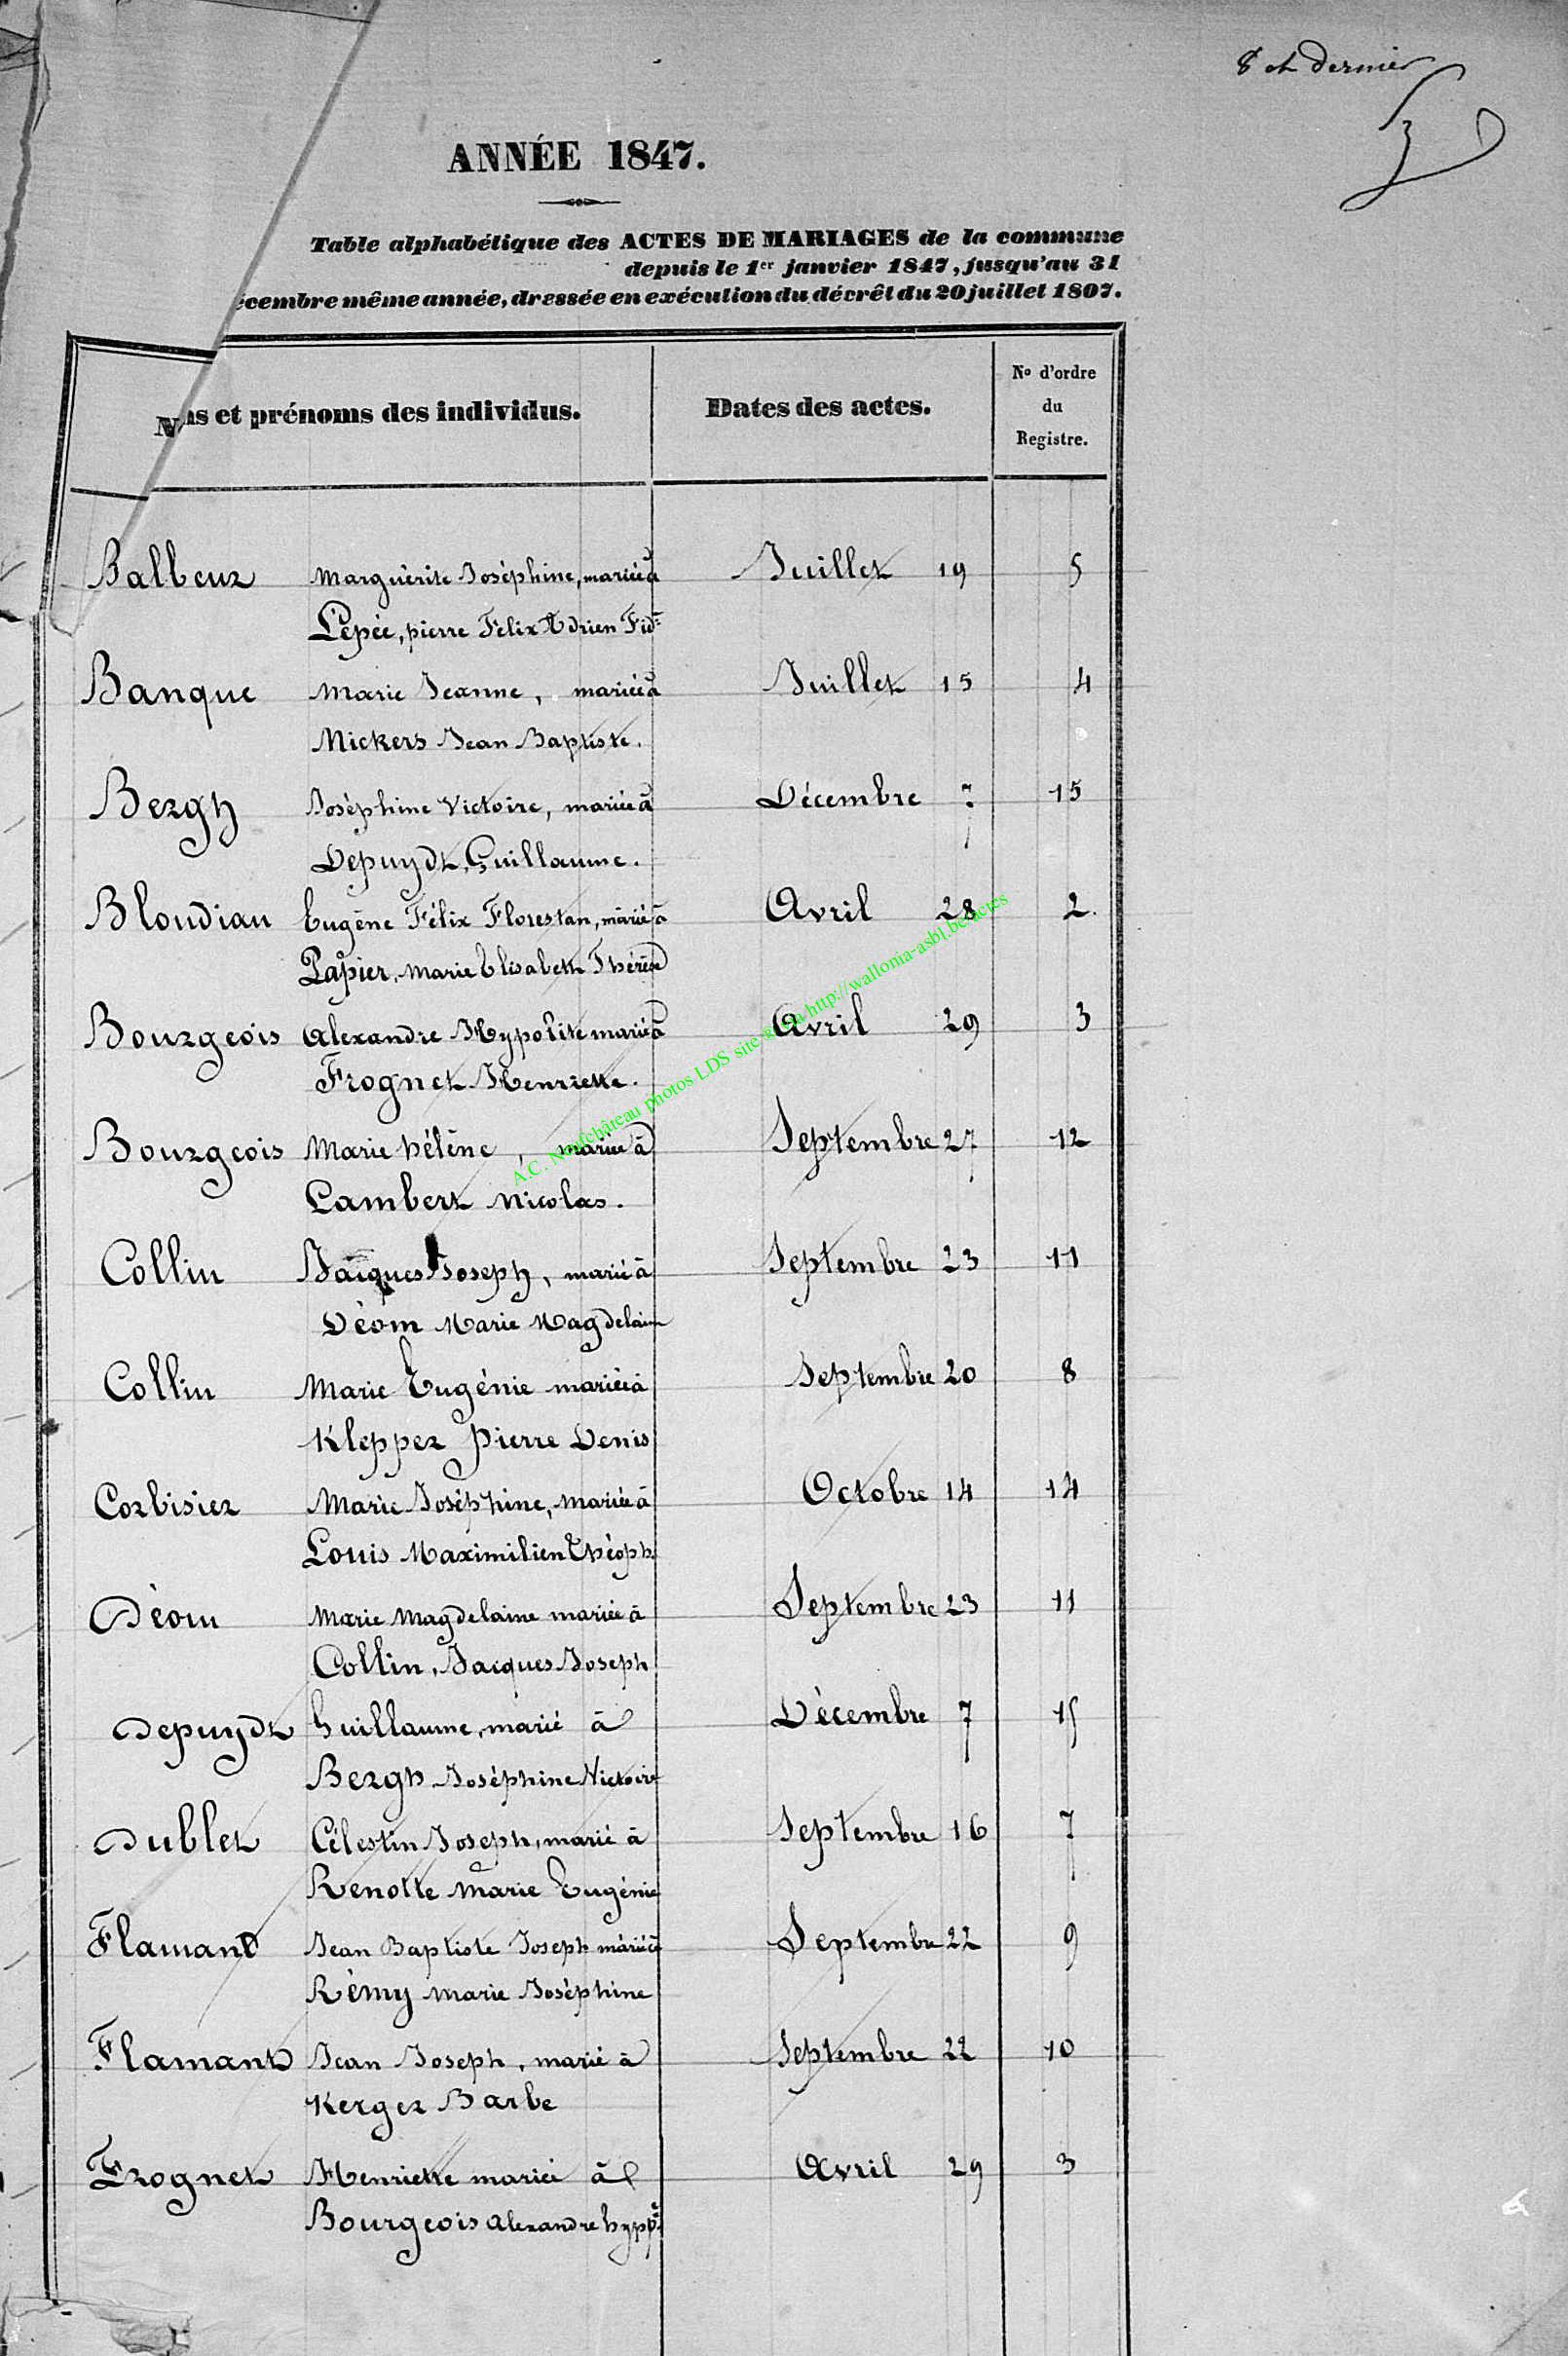 8 et dernier
ANNÉE 1847.
Table alphabétique des ACTES DE MARIAGES de la commune
depuis le 1er janvier 1847, jusqu'au 31
écembre même année, dressée en exécution du décrêt du 20 juillet 1807.
N ms et prénoms des individus. Dates des actes. No d'ordre du Registre.
Balbeur Marguèrite Joséphine, mariée à Juillet 19 5
Lepée, pierre Félix Adrien Fidle
Banque Marie Jeanne, mariée à Juillet 15 4
Mickers Jean Baptiste.
Bergh Joséphine Victoire, mariée à Décembre 7 15
Depuydt, Guillaume.
Bloudiau Eugène Félix Florestan, marié à Avril 28 2.
Papier, marie Elisabeth Thérèse
Bourgeois Alexandre Hypolite marié à Avril 29 3
Frognet Henriette.
Bourgeois Marie hélène, mariée à Septembre 27 12
Lambert Nicolas.
Collin Jacques Joseph, marié à Septembre 23 11
Dèom Marie Magdelaine
Collin Marie Eugénie mariée à Septembre 20 8
Klepper Pierre Denis
Corbisier Marie Joséphine, mariée à Octobre 14 14
Louis Maximilien Théoph.
Dèom Marie Magdelaine mariée à Septembre 23 11
Collin, Jacques Joseph
Depuydt Guillaume, marié à Décembre 7 15
Bergh Joséphine Victoire
Dublet Célestin Joseph, marié à Septembre 16 7
Renotte Marie Eugénie
Flamant Jean Baptiste Joseph marié à Septembre 22 9
Rémy Marie Joséphine
Flamant Jean Joseph, marié à Septembre 22 10
Kerger Barbe
Frognet Henriette mariée à Avril 29 3
Bourgeois Alexandre hypp.
A.C. Neufchâteau photos LDS site http://wallonia-asbl.be/actes